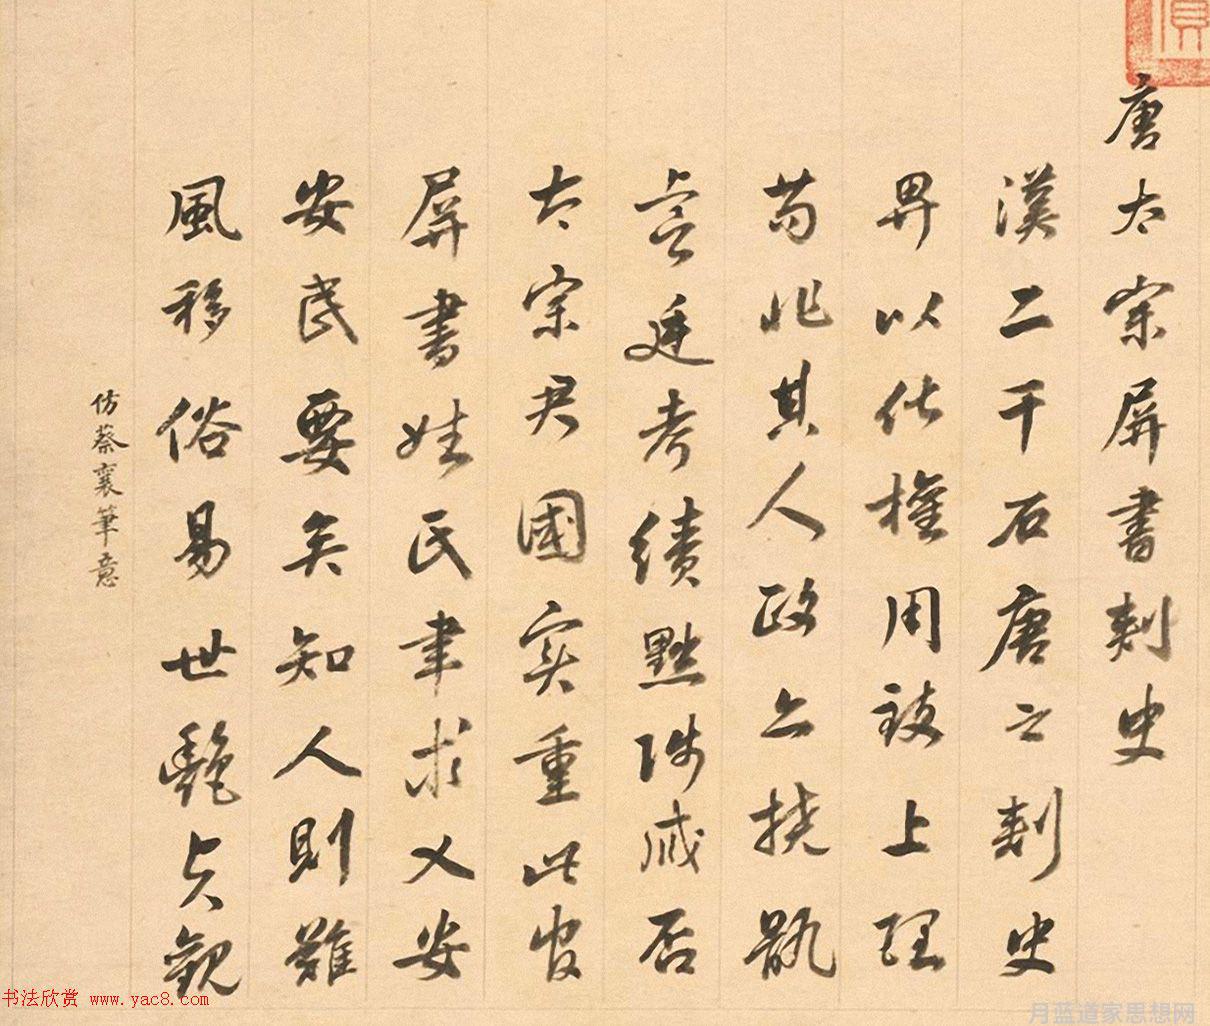 唐太宗屏書刺史
漢二千石唐之刺史
畀以化權用致上理
苟非其人政亦撓骫
虞廷考績黜陟臧否
太宗君國實重此官
屏書姓氏聿求乂安
安民要矣知人則難
風移俗易世艷貞觀
仿蔡襄筆意
书法欣赏 www.yac8.com
月蓝道家思想网